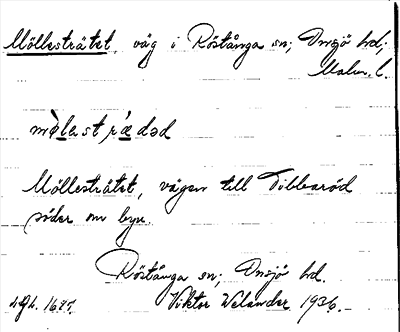 Möllesträtet, väg i Röstånga sn; Onsjö hd;
Malm. l.
mö̀lastrǽdəd
Möllesträtet, vägen till Tibbaröd
söder om byn.
Röstånga sn; Onsjö hd.
Viktor Welander 1936.-